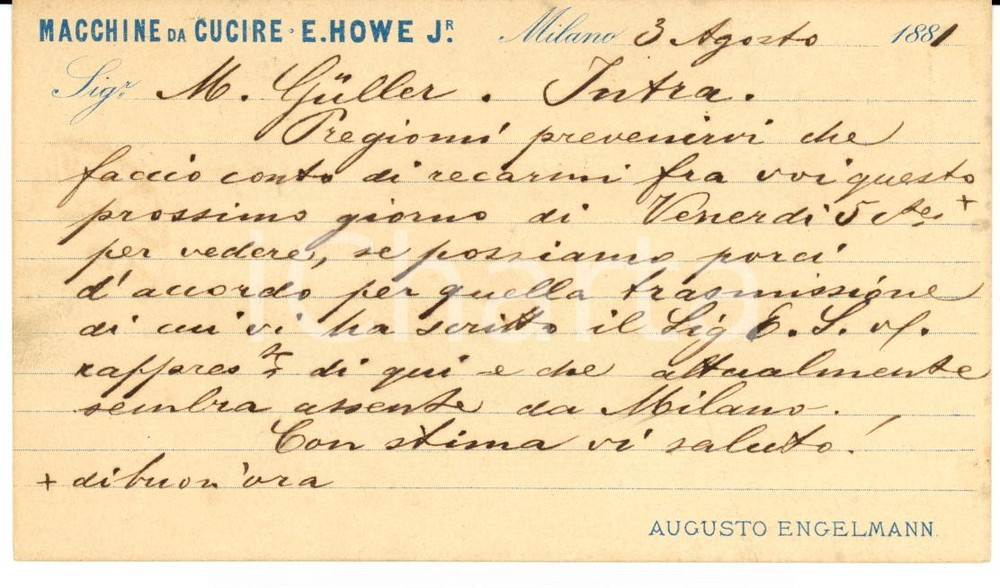 MACCHINE DA CUCIRE · E. HOWE JR. Milano 3 Agosto 1881
Sigr. M. Güller . Intra .
Pregiomi prevenirvi che
faccio conto di recarmi fra voi questo
prossimo giorno di Venerdì 5 cte +
per vedere, se possiamo porci
d'accordo per quella trasmissione
di cui vi ha scritto il Sig E. S.
rappreste di qui e che attualmente
sembra assente da Milano .
Con stima vi saluto!
+ di buon'ora
AUGUSTO ENGELMANN.
iCharta